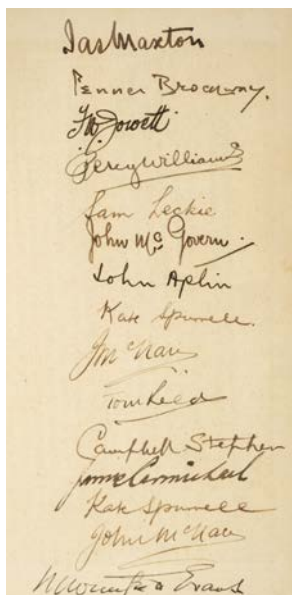 Jas Maxton
Fenner Brockway.
F.W. Jowett
Percy Williams
Sam Leckie
John McGovern.
John Aplin
Kate Spurrell.
J McNair
Tom Reed
Campbell Stephen
James Carmichael
Kate Spurrell
John McNair
Evans